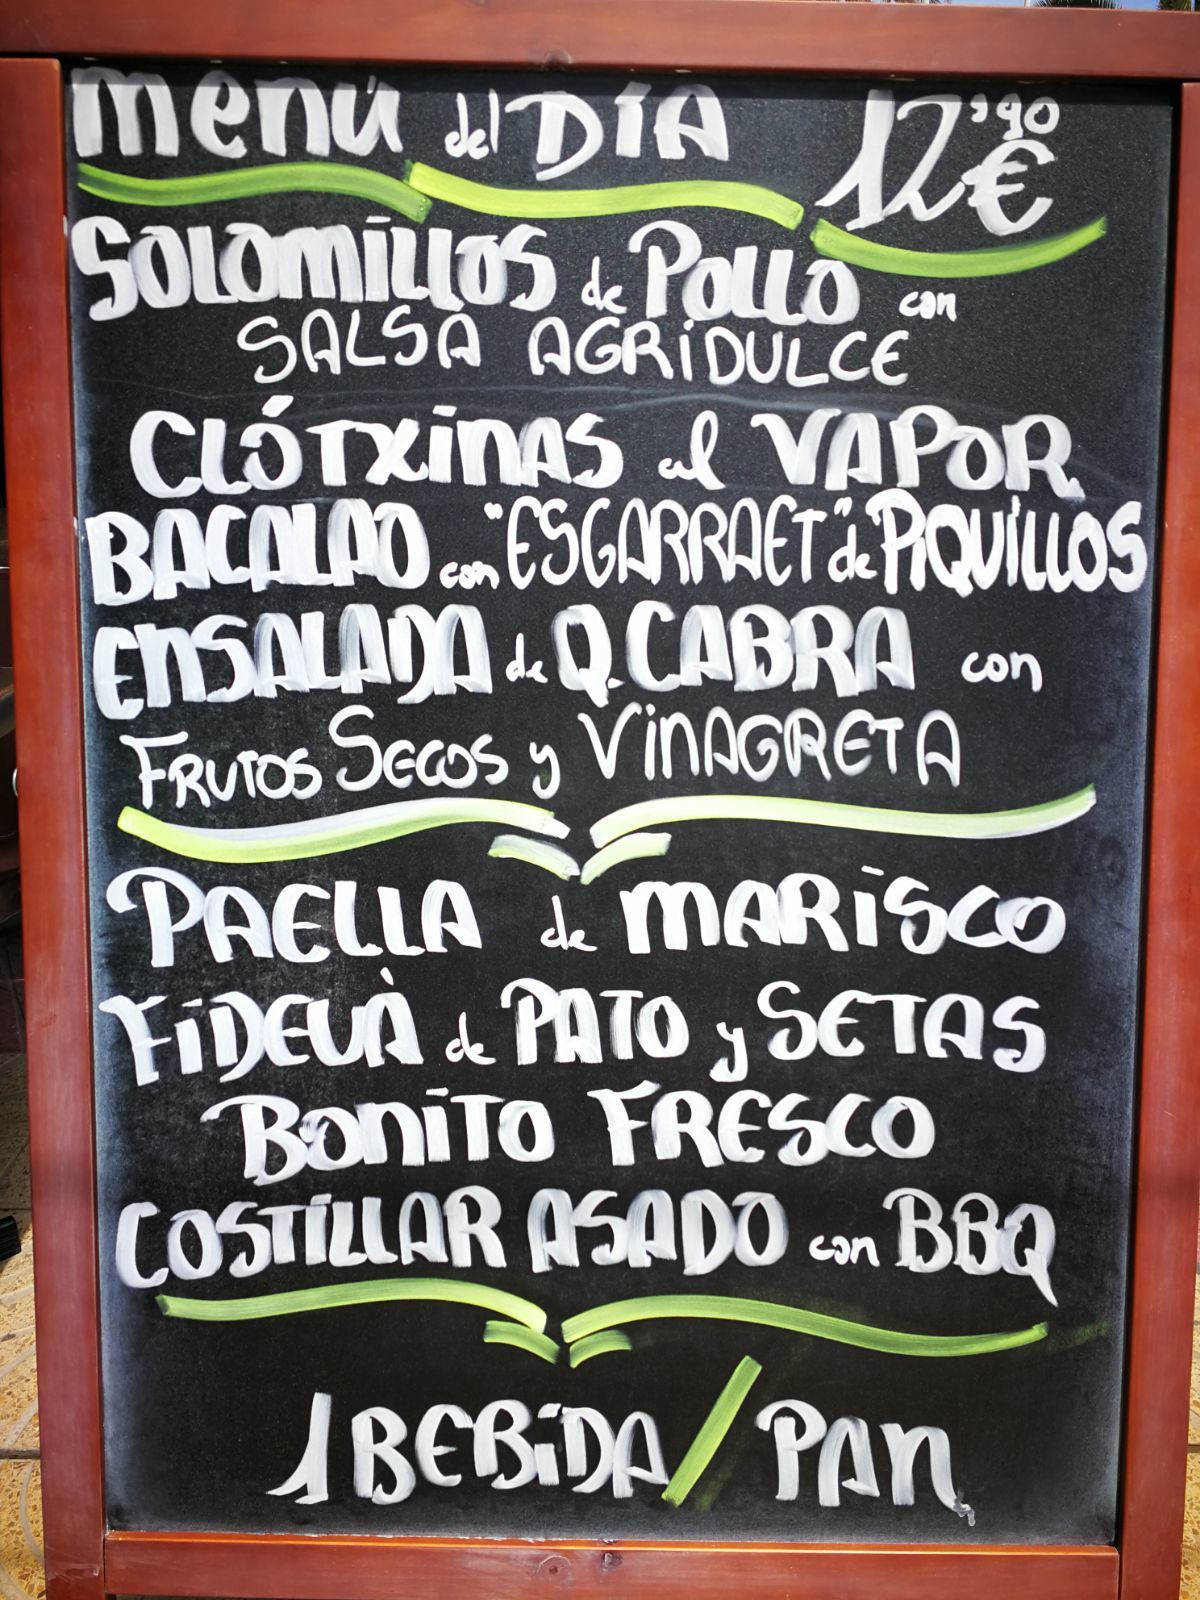 Menú del DÍA 12'90€
SOLOMILLOS de POLLO con
SALSA AGRIDULCE
CLÓTXINAS al VAPOR
BACALAO con "ESGARRAET" de PIQUILLOS
ENSALADA de Q.CABRA con
FRUTOS SECOS y VINAGRETA
PAELLA de MARISCO
FIDEUÀ de PATO y SETAS
BONITO FRESCO
COSTILLAR ASADO con BBQ
1 BEBIDA / PAN